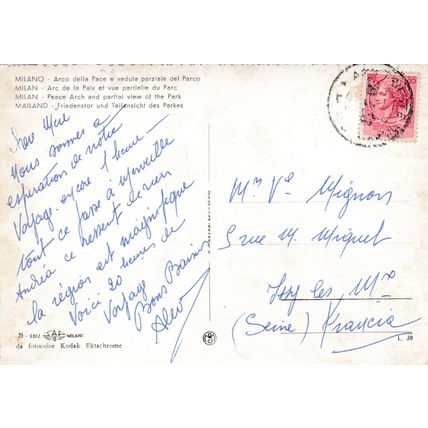 MILANO - Arco della Pace e veduta parziale del Parco
MILAN - Arc de la Paix et vue partielle du Parc
MILAN - Peace Arch and partial view of the Park
MAILAND - Friedenstor und Teilansicht des Parkes
Nous sommes à
de notre
Voyage, encore 1 heure
tout ce passe à merveille
Andréa ce ressent de rien
la région est magnifique
Voici 20 heures de
Voyage
Bons Baisers
Mme Ve Mignon
5 rue M. Miquel
les
(Seine) Francia
21 - 1012 SAF MILANO
da fotocolor Kodak Ektachrome
L. 30